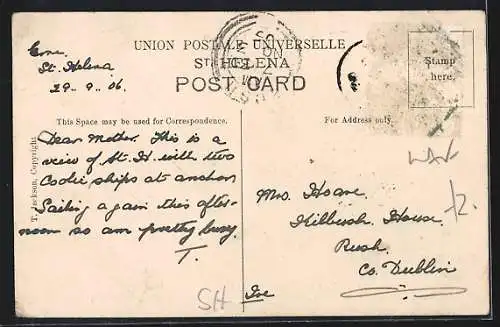 UNION POSTALE UNIVERSELLE
ST. HELENA
POST CARD
Stamp
here.
St. Helena
29-9.06
This Space may be used for Correspondence.
For Address only.
T. Jackson, Copyright
Dear Mother. This is a
view of St. H. with two
Coolie ships at anchor
Sailing again this after-
noon so am pretty busy.
T.
Mrs. Hoare,
Kilbush House,
Rush,
Co. Dublin
Ire
SH